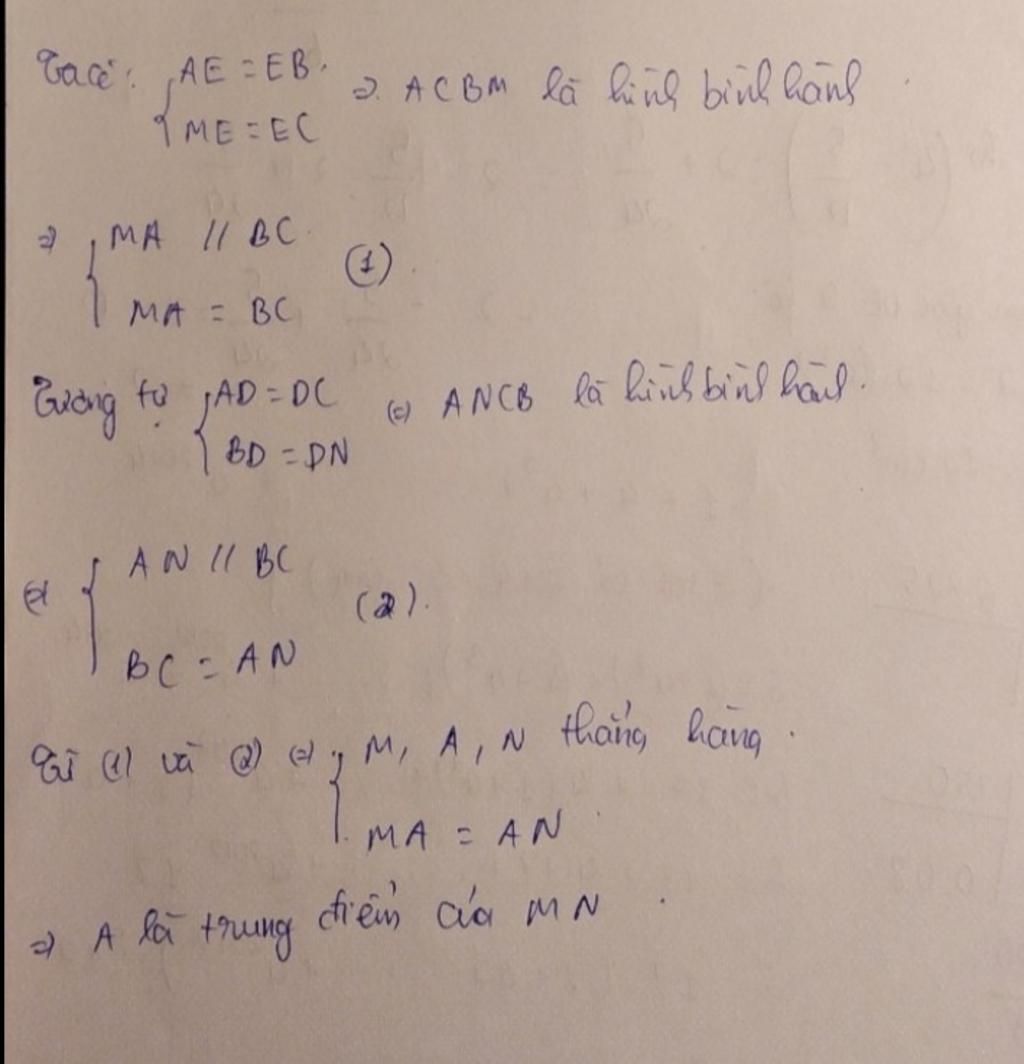 Ta có: { AE = EB. ⇒ ACBM là hình bình hành
ME = EC
⇒ { MA // BC. (1)
MA = BC
Tương tự { AD = DC ⇔ ANCB là hình bình hành.
BD = DN
⇔ { AN // BC (2).
BC = AN
Từ (1) và (2) ⇔ { M, A, N thẳng hàng.
MA = AN
⇒ A là trung điểm của MN.